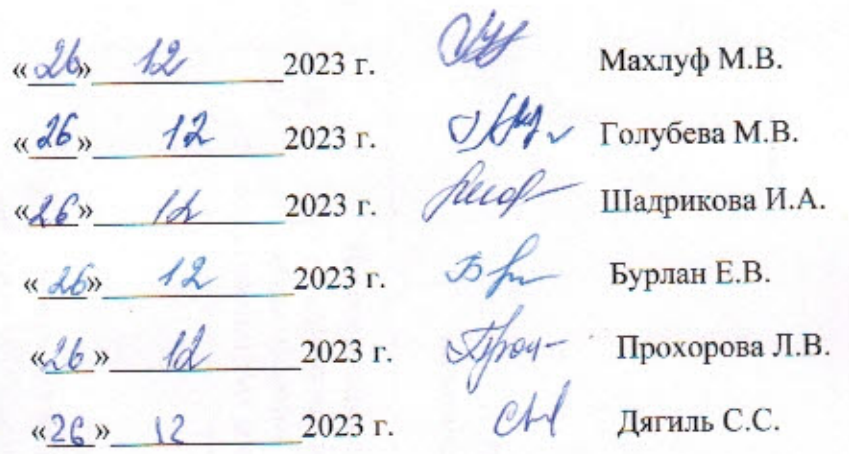 «26» 12 2023 г. Махлуф М.В.
«26» 12 2023 г. Голубева М.В.
«26» 12 2023 г. Шадрикова И.А.
«26» 12 2023 г. Бурлан Е.В.
«26» 12 2023 г. Прохорова Л.В.
«26» 12 2023 г. Дягиль С.С.